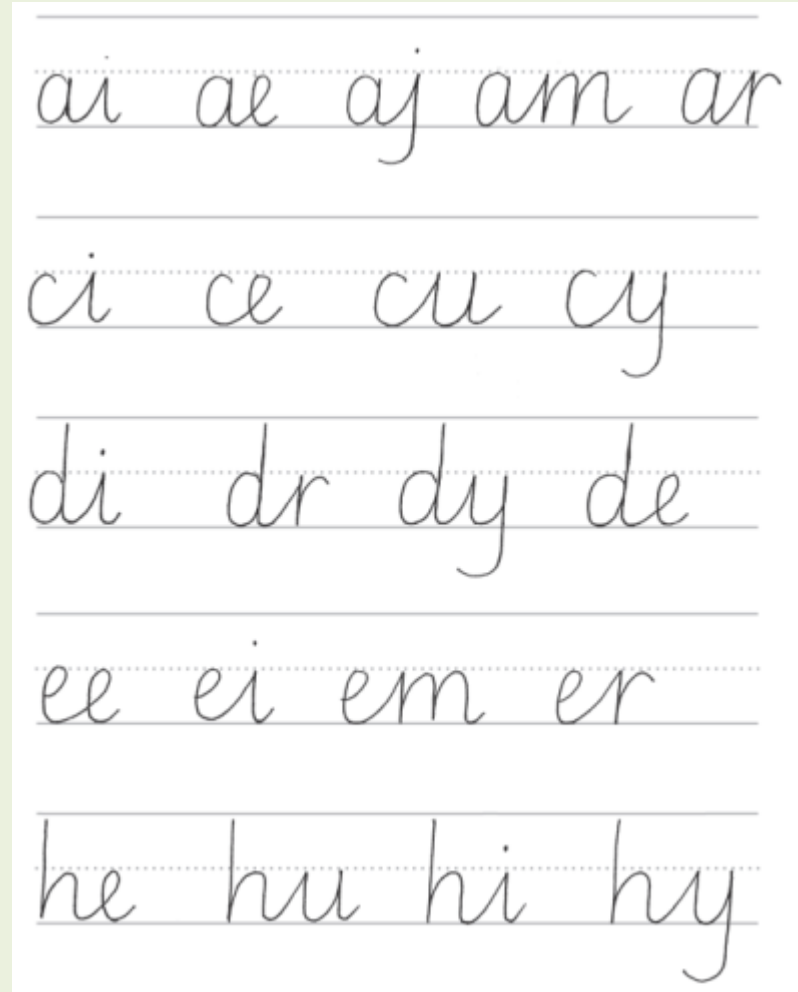 ai ae aj am ar
ci ce cu cy
di dr dy de
ee ei em er
he hu hi hy